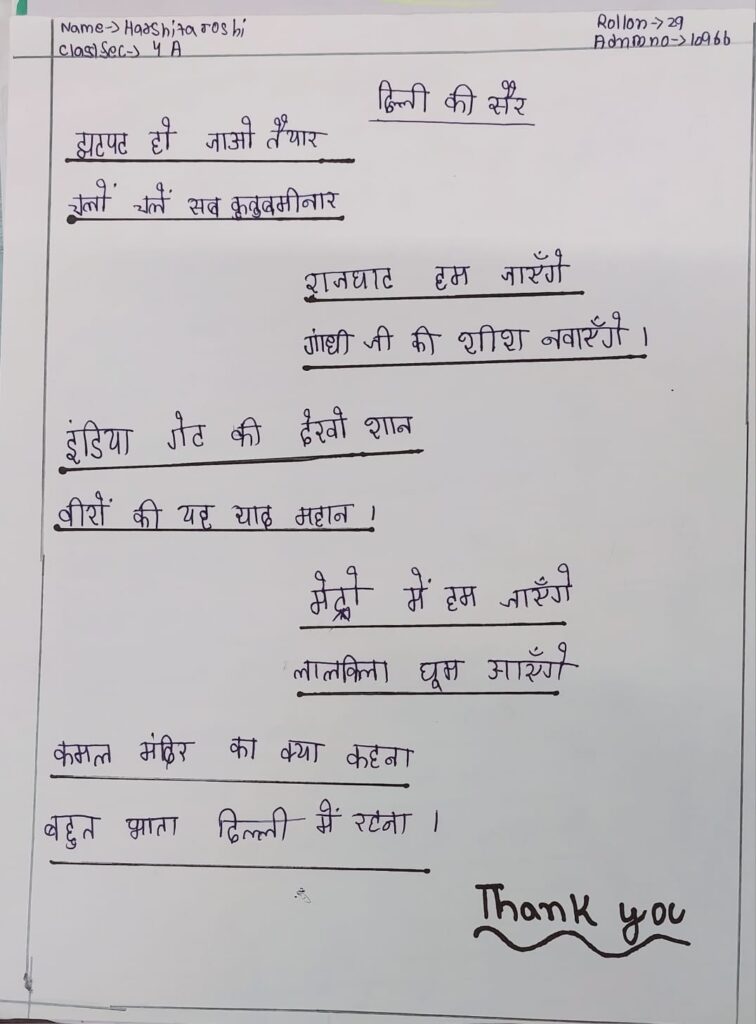 Name→Harshita roshi
Rollon→29
Class/Sec→ 4 A
Admno→10966
दिल्ली की सैर
झटपट हो जाओ तैयार
चलों चलें सब कुतुबमीनार
राजघाट हम जाएँगे
गांधी जी की शीश नवाएँगे ।
इंडिया गेट की देखो शान
वीरों की यह याद महान ।
मेट्रो में हम जाएँगे
लालकिला घूम आएँगे
कमल मंदिर का क्या कहना
बहुत भाता दिल्ली में रहना ।
Thank you